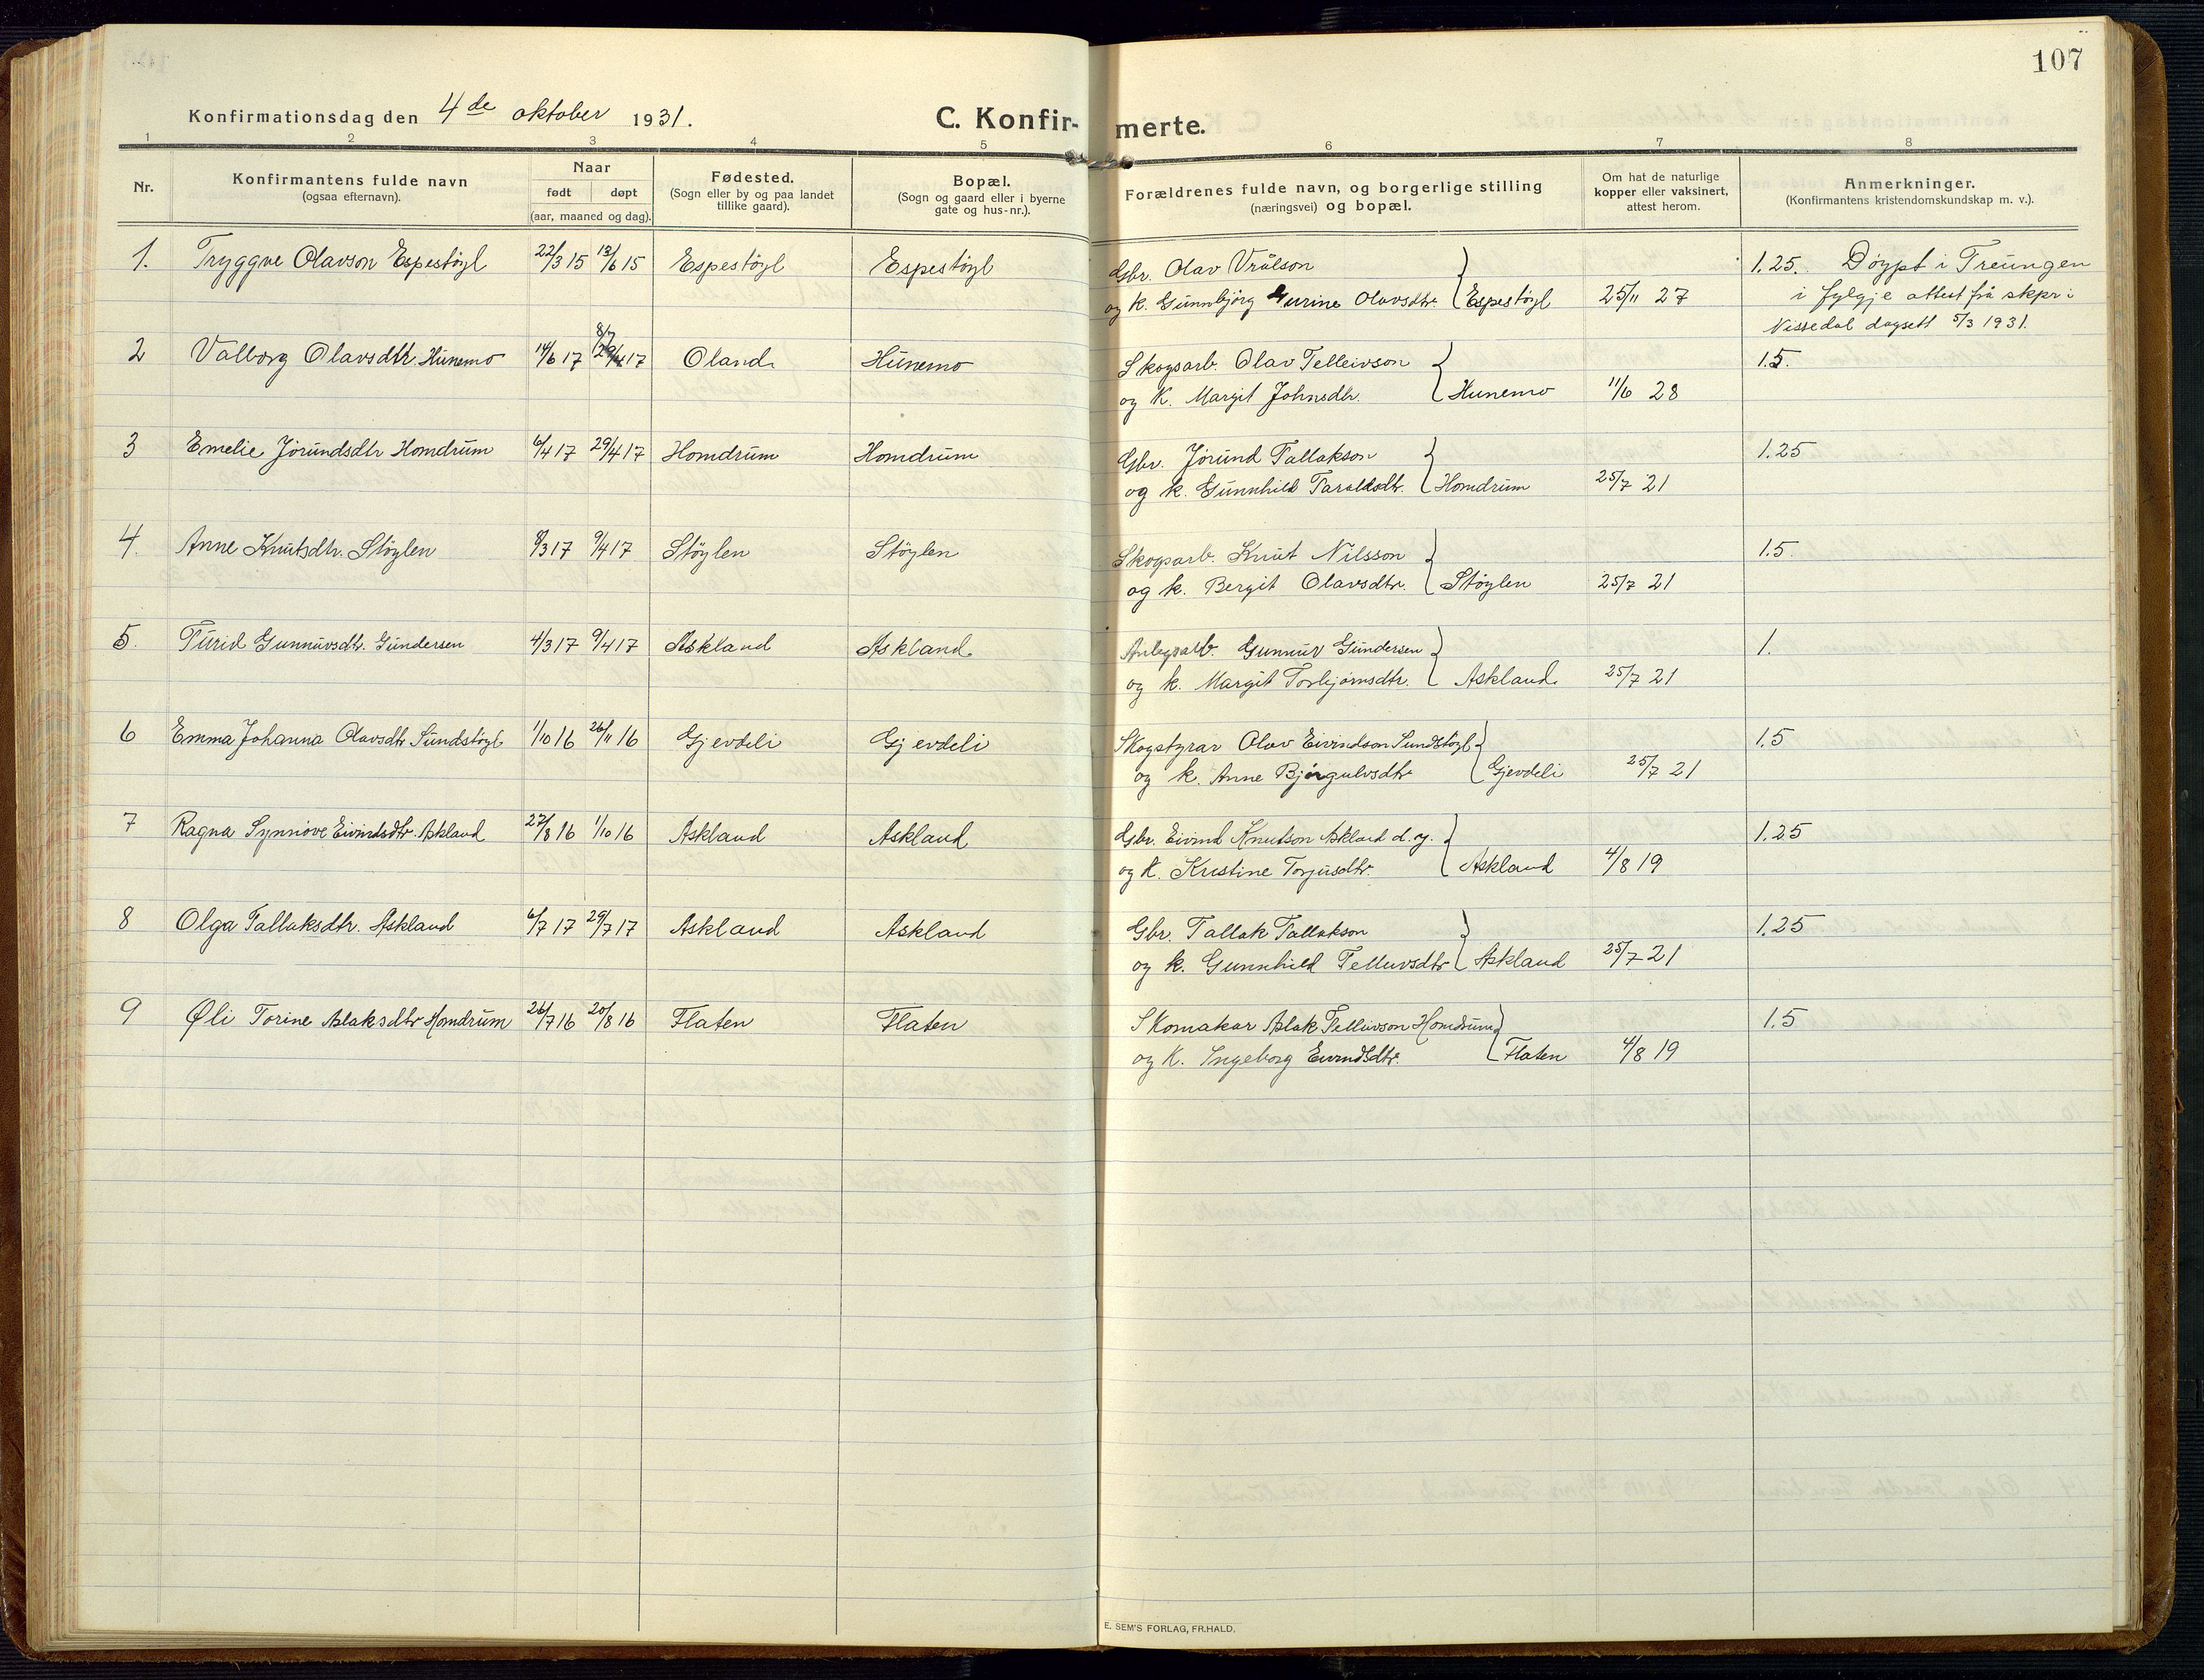 107
Konfirmationsdag den 4de oktober 1931.
C. Konfir-
merte.
1 2 3 4 5 6 7 8
Nr.
Konfirmantens fulde navn
(ogsaa efternavn).
Naar
født døpt
(aar, maaned og dag).
Fødested.
(Sogn eller by og paa landet
tillike gaard).
Bopæl.
(Sogn og gaard eller i byerne
gate og hus-nr.).
Forældrenes fulde navn, og borgerlige stilling
(næringsvei) og bopæl.
Om hat de naturlige
kopper eller vaksinert,
attest herom.
Anmerkninger.
(Konfirmantens kristendomskundskap m. v.).
1. Tryggve Olavson Espestøyl 22/3 15 13/6 15 Espestøyl Espestøyl Gbr. Olav Vrålson 1.25. Døypt i Treungen
og k. Gunnbjørg Gurine Olavsdtr. Espestøyl 25/11 27 i fylgje attest frå skpr i
Nissedal dagsett 5/3 1931.
2 Valborg Olavsdtr. Hunemo 14/6 17 8/7 29/4 17 Oland. Hunemo Skogsarb. Olav Telleivson 1.5.
og K. Margit Johnsdtr. Hunemo 11/6 28
3 Emelie Jørundsdtr Homdrum 6/4 17 29/4 17 Homdrum Homdrum Gbr. Jørund Tallakson 1.25
og k. Gunnhild Taraldsdtr. Homdrum 25/7 21
4. Anne Knutsdtr. Støylen 8/3 17 9/4 17 Støylen Støylen Skogsarb. Knut Nilsson 1.5.
og k. Bergit Olavsdtr. Støylen 25/7 21
5. Turid Gunnuvsdtr. Gundersen 4/3 17 9/4 17 Askland Askland. Anlegsarb. Gunnuv Gundersen 1.
og k. Margit Torbjørnsdtr. Askland. 25/7 21
6 Emma Johanna Olavsdtr Sundstøyl 1/10 16 26/11 16 Gjevdeli Gjevdeli Skogstyrar Olav Eivindson Sundstøyl 1.5
og k. Anne Bjørgulvsdtr Gjevdeli 25/7 21
7 Ragna Synnøve Eivindsdtr. Askland 27/8 16 1/10 16 Askland Askland Gbr. Eivind Knutson Askland d. y. 1.25
og K. Kristine Torjusdtr. Askland 4/8 19
8 Olga Tallaksdtr. Askland 6/7 17 29/7 17 Askland Askland Gbr. Tallak Tallakson 1.25
og k. Gunnhild Telluvsdtr Askland 25/7 21
9 Øli Torine Aslaksdtr Homdrum 26/7 16 20/8 16 Flaten Flaten Skomakar Aslak Tellevson Homdrum 1.5
og K. Ingeborg Eivindsdtr. Flaten 4/8 19
E. SEM'S FORLAG, FR.HALD.